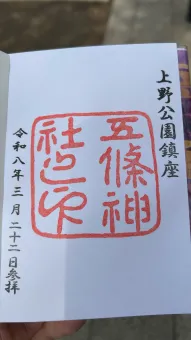 上野公園鎮座
五條神
社之印
令和八年三月二十二日参拝